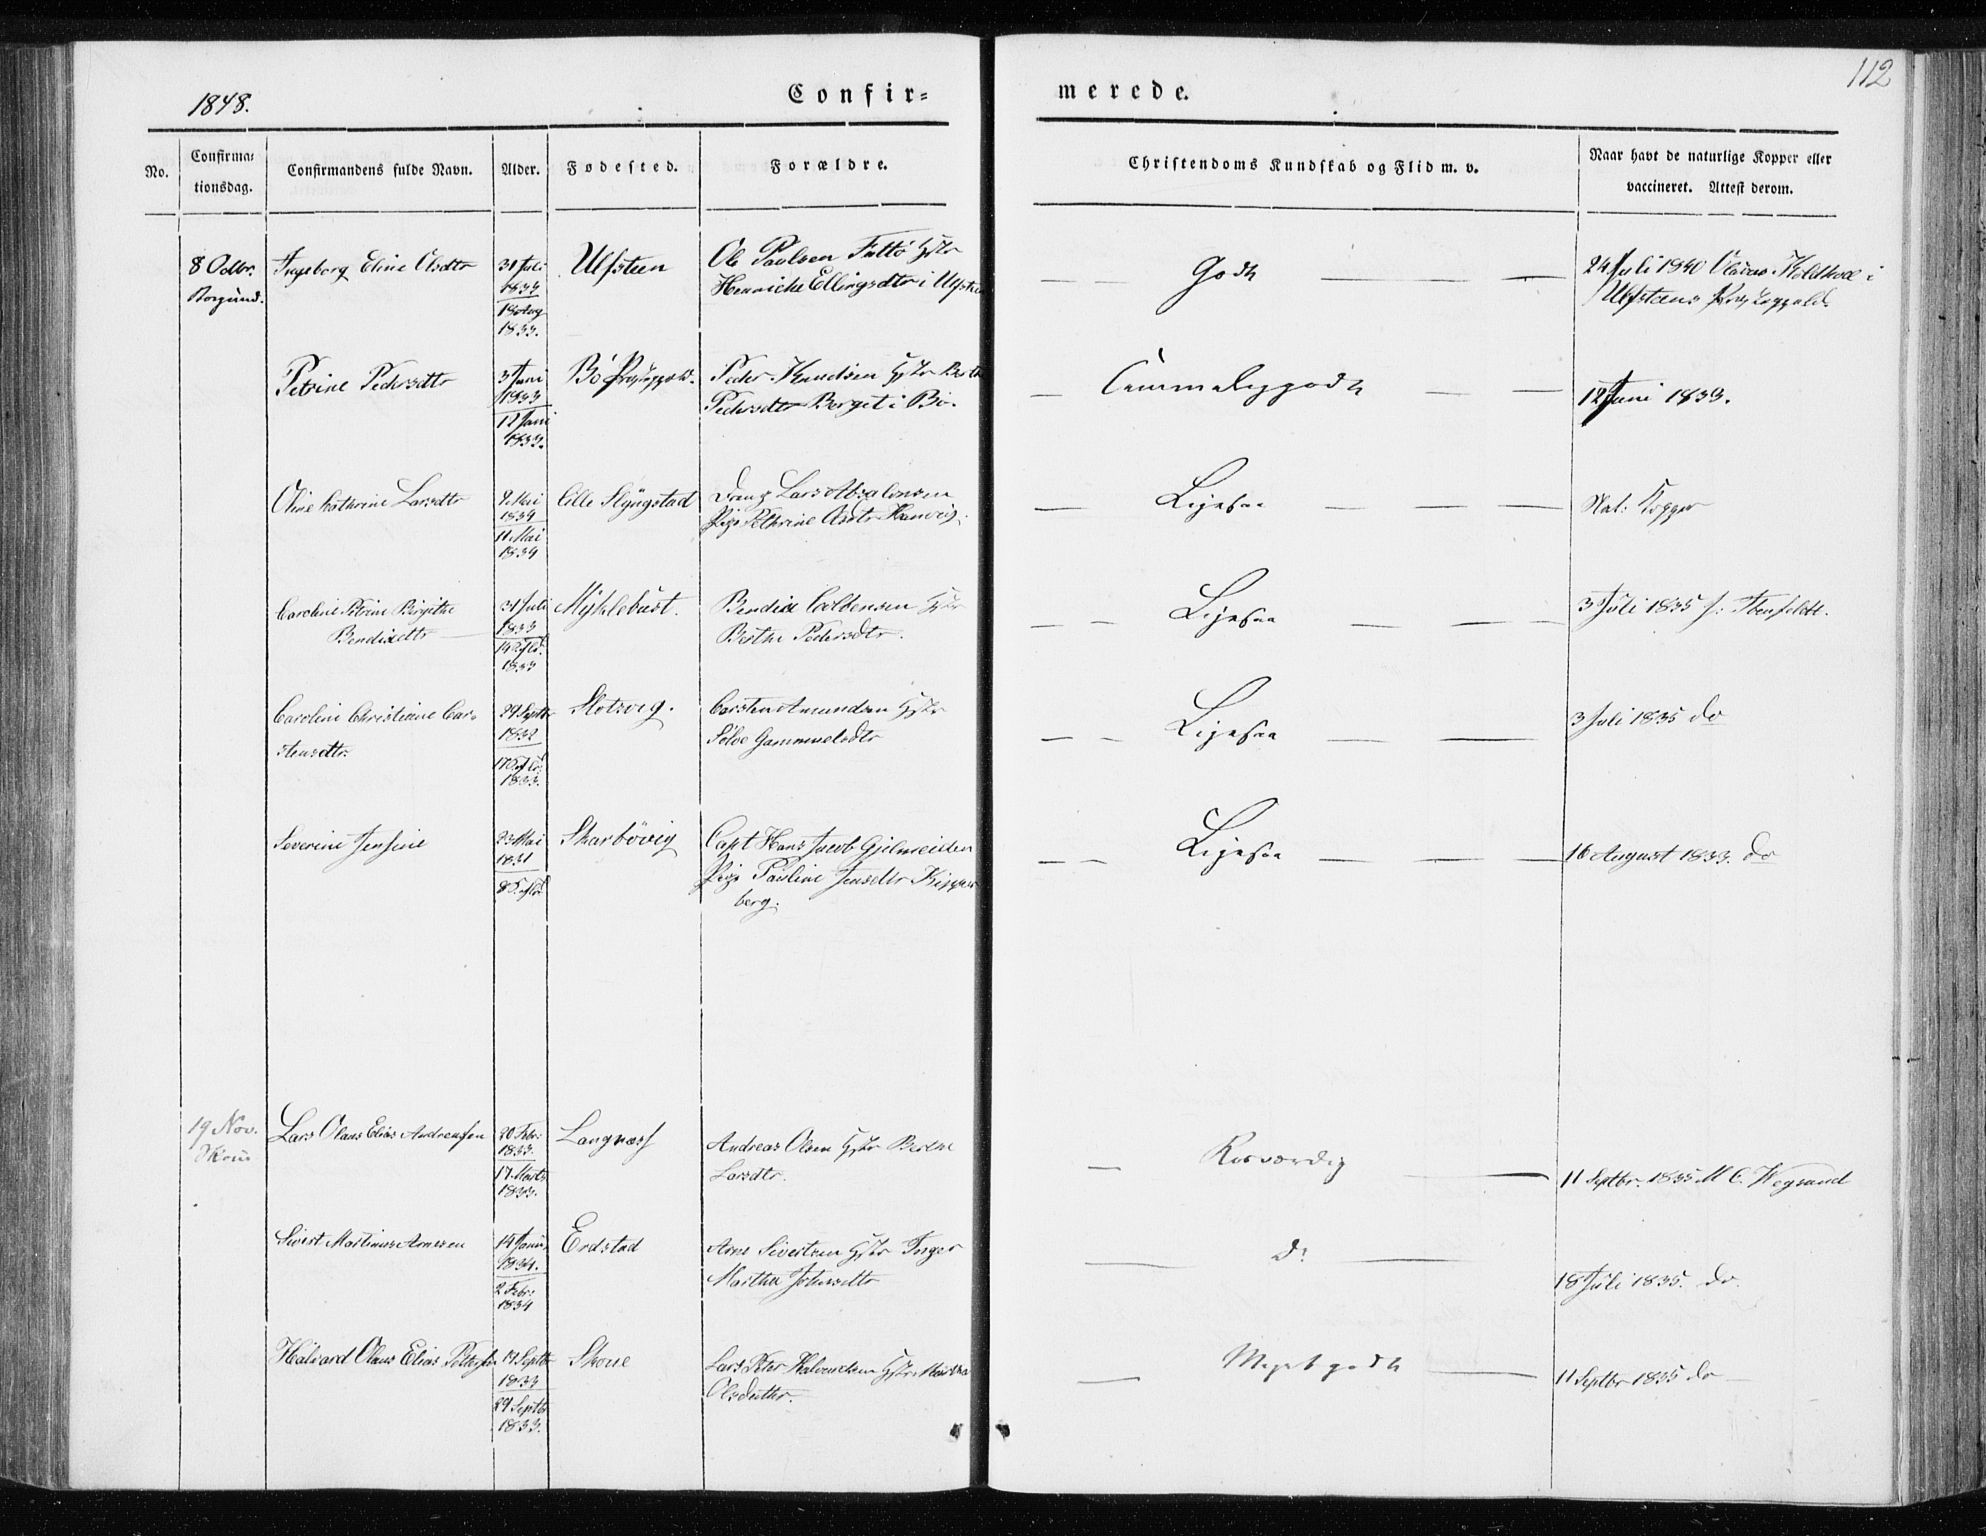 1848.
Confir=
merede.
112
No.
Confirma=
tionsdag.
Confirmandens fulde Navn.
Alder.
Fødested.
Forældre.
Christendoms Kundskab og Flid m. v.
Naar havt de naturlige Kopper eller
vaccineret. Attest derom.
8 Octbr.
Borgund.
Ingeborg Eline Olsdtr
31 Juli
1833
18 Aug
1833.
Ulfsteen
Ole Paulsen
Henricke Ellingsdtr i Ulfsteen
Godt
24 Juli 1840 Olaus Koldtvee i
Ulfsteens
Petrine Pedersdtr
3 Juni
1833
12 Juni
1833.
Bö
Peder Knudsen Hstr Berthe
Pedersdtr Berget i Bö.
Temmelig godt
12 Juni 1833.
Oline Kathrine Larsdtr
8 Mai
1834
11 Mai
1834
Lille Slyngstad
Lars Absalonsen
Pige Pethrine
Ligesaa
Nat: Kopper
Caroline Petrine Birgithe
Bendixdtr
31 Juli
1833
1833
Myklebust.
Bendix Colbensen Hstr
Berthe Pedersdtr.
Ligesaa
3 Juli 1835
Caroline Christiane Car-
stensdtr.
29 Septbr
1832
1833.
Slotsvig.
Carsten Amundsen Hstr
Sølve Gammelsdtr
Ligesaa
3 Juli 1835 do
Severine Jensine
23 Mai
1831
Skarbövig
Capt Hans Jacob
Pige Pauline Jensdtr Kipper
berg.
Ligesaa
16 August 1833. do
19 Nov.
Skoue
Lars Olaus Elias Andreasen
20 Febr:
1833.
17 Marts
1833.
Langnæss
Andreas Olsen Hstr Berthe
Larsdtr.
Rosværdig
11 Septbr. 1835 M C. Wegsund
Sivert Martinus Arnesen
14 Januar
1834.
2 Febr.
1834
Erdstad
Arne Sivertsen Hstr Inger
Martha Johnsdtr
do
18 Juli 1835. do.
Halvard Olaus Elias Pettersen
1833
29 Septbr
1833.
Skoue
Lars Peter Halvardsen Hstr Martha
Olsdatter.
Meget godt
11 Septbr 1835 do